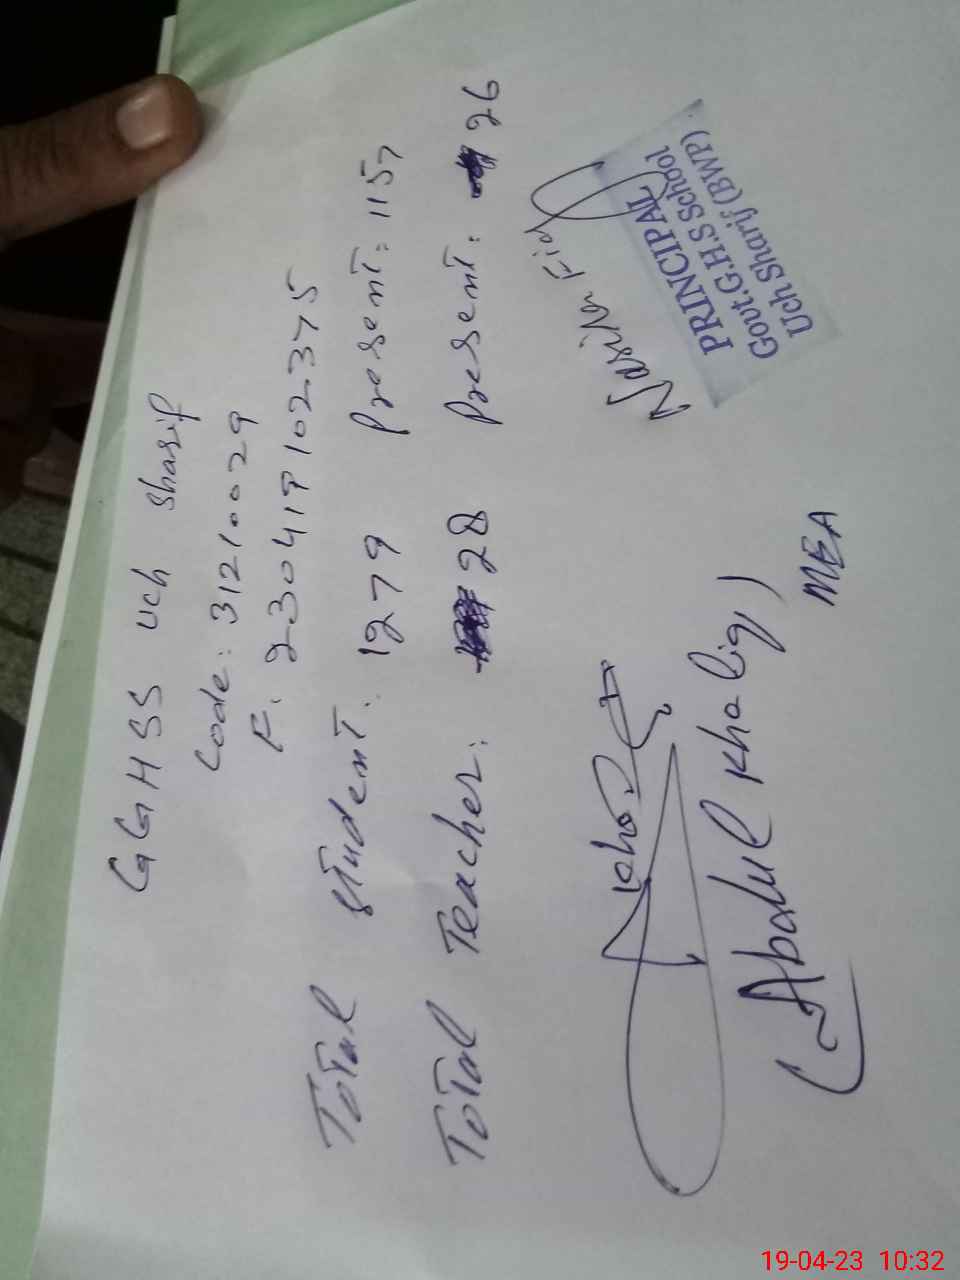 GGHSS Uch Sharif
Code: 31210029
F. 230419102375
Total Student. 1279 Present: 1157
Total Teacher: 28 Present: 26
PRINCIPAL
Govt.G.H.S School
Uch Sharif (BWP)
(Abdul Khaliq)
MEA
19-04-23 10:32